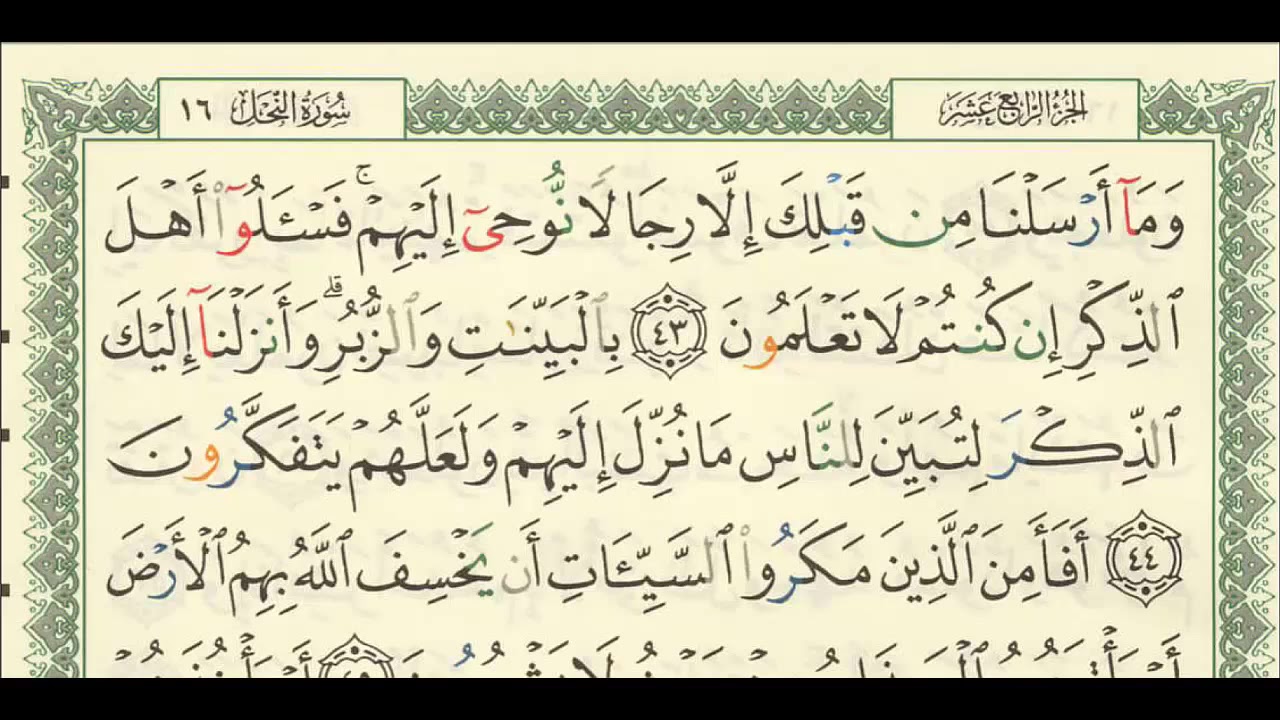 الجزء الرابع عشر
سورة النحل ١٦
وَمَآ أَرْسَلْنَا مِن قَبْلِكَ إِلَّا رِجَالًا نُّوحِىٓ إِلَيْهِمْ ۚ فَسْـَٔلُوٓا۟ أَهْلَ
ٱلذِّكْرِ إِن كُنتُمْ لَا تَعْلَمُونَ ٤٣ بِٱلْبَيِّنَـٰتِ وَٱلزُّبُرِ ۗ وَأَنزَلْنَآ إِلَيْكَ
ٱلذِّكْرَ لِتُبَيِّنَ لِلنَّاسِ مَا نُزِّلَ إِلَيْهِمْ وَلَعَلَّهُمْ يَتَفَكَّرُونَ
٤٤ أَفَأَمِنَ ٱلَّذِينَ مَكَرُوا۟ ٱلسَّيِّـَٔاتِ أَن يَخْسِفَ ٱللَّهُ بِهِمُ ٱلْأَرْضَ